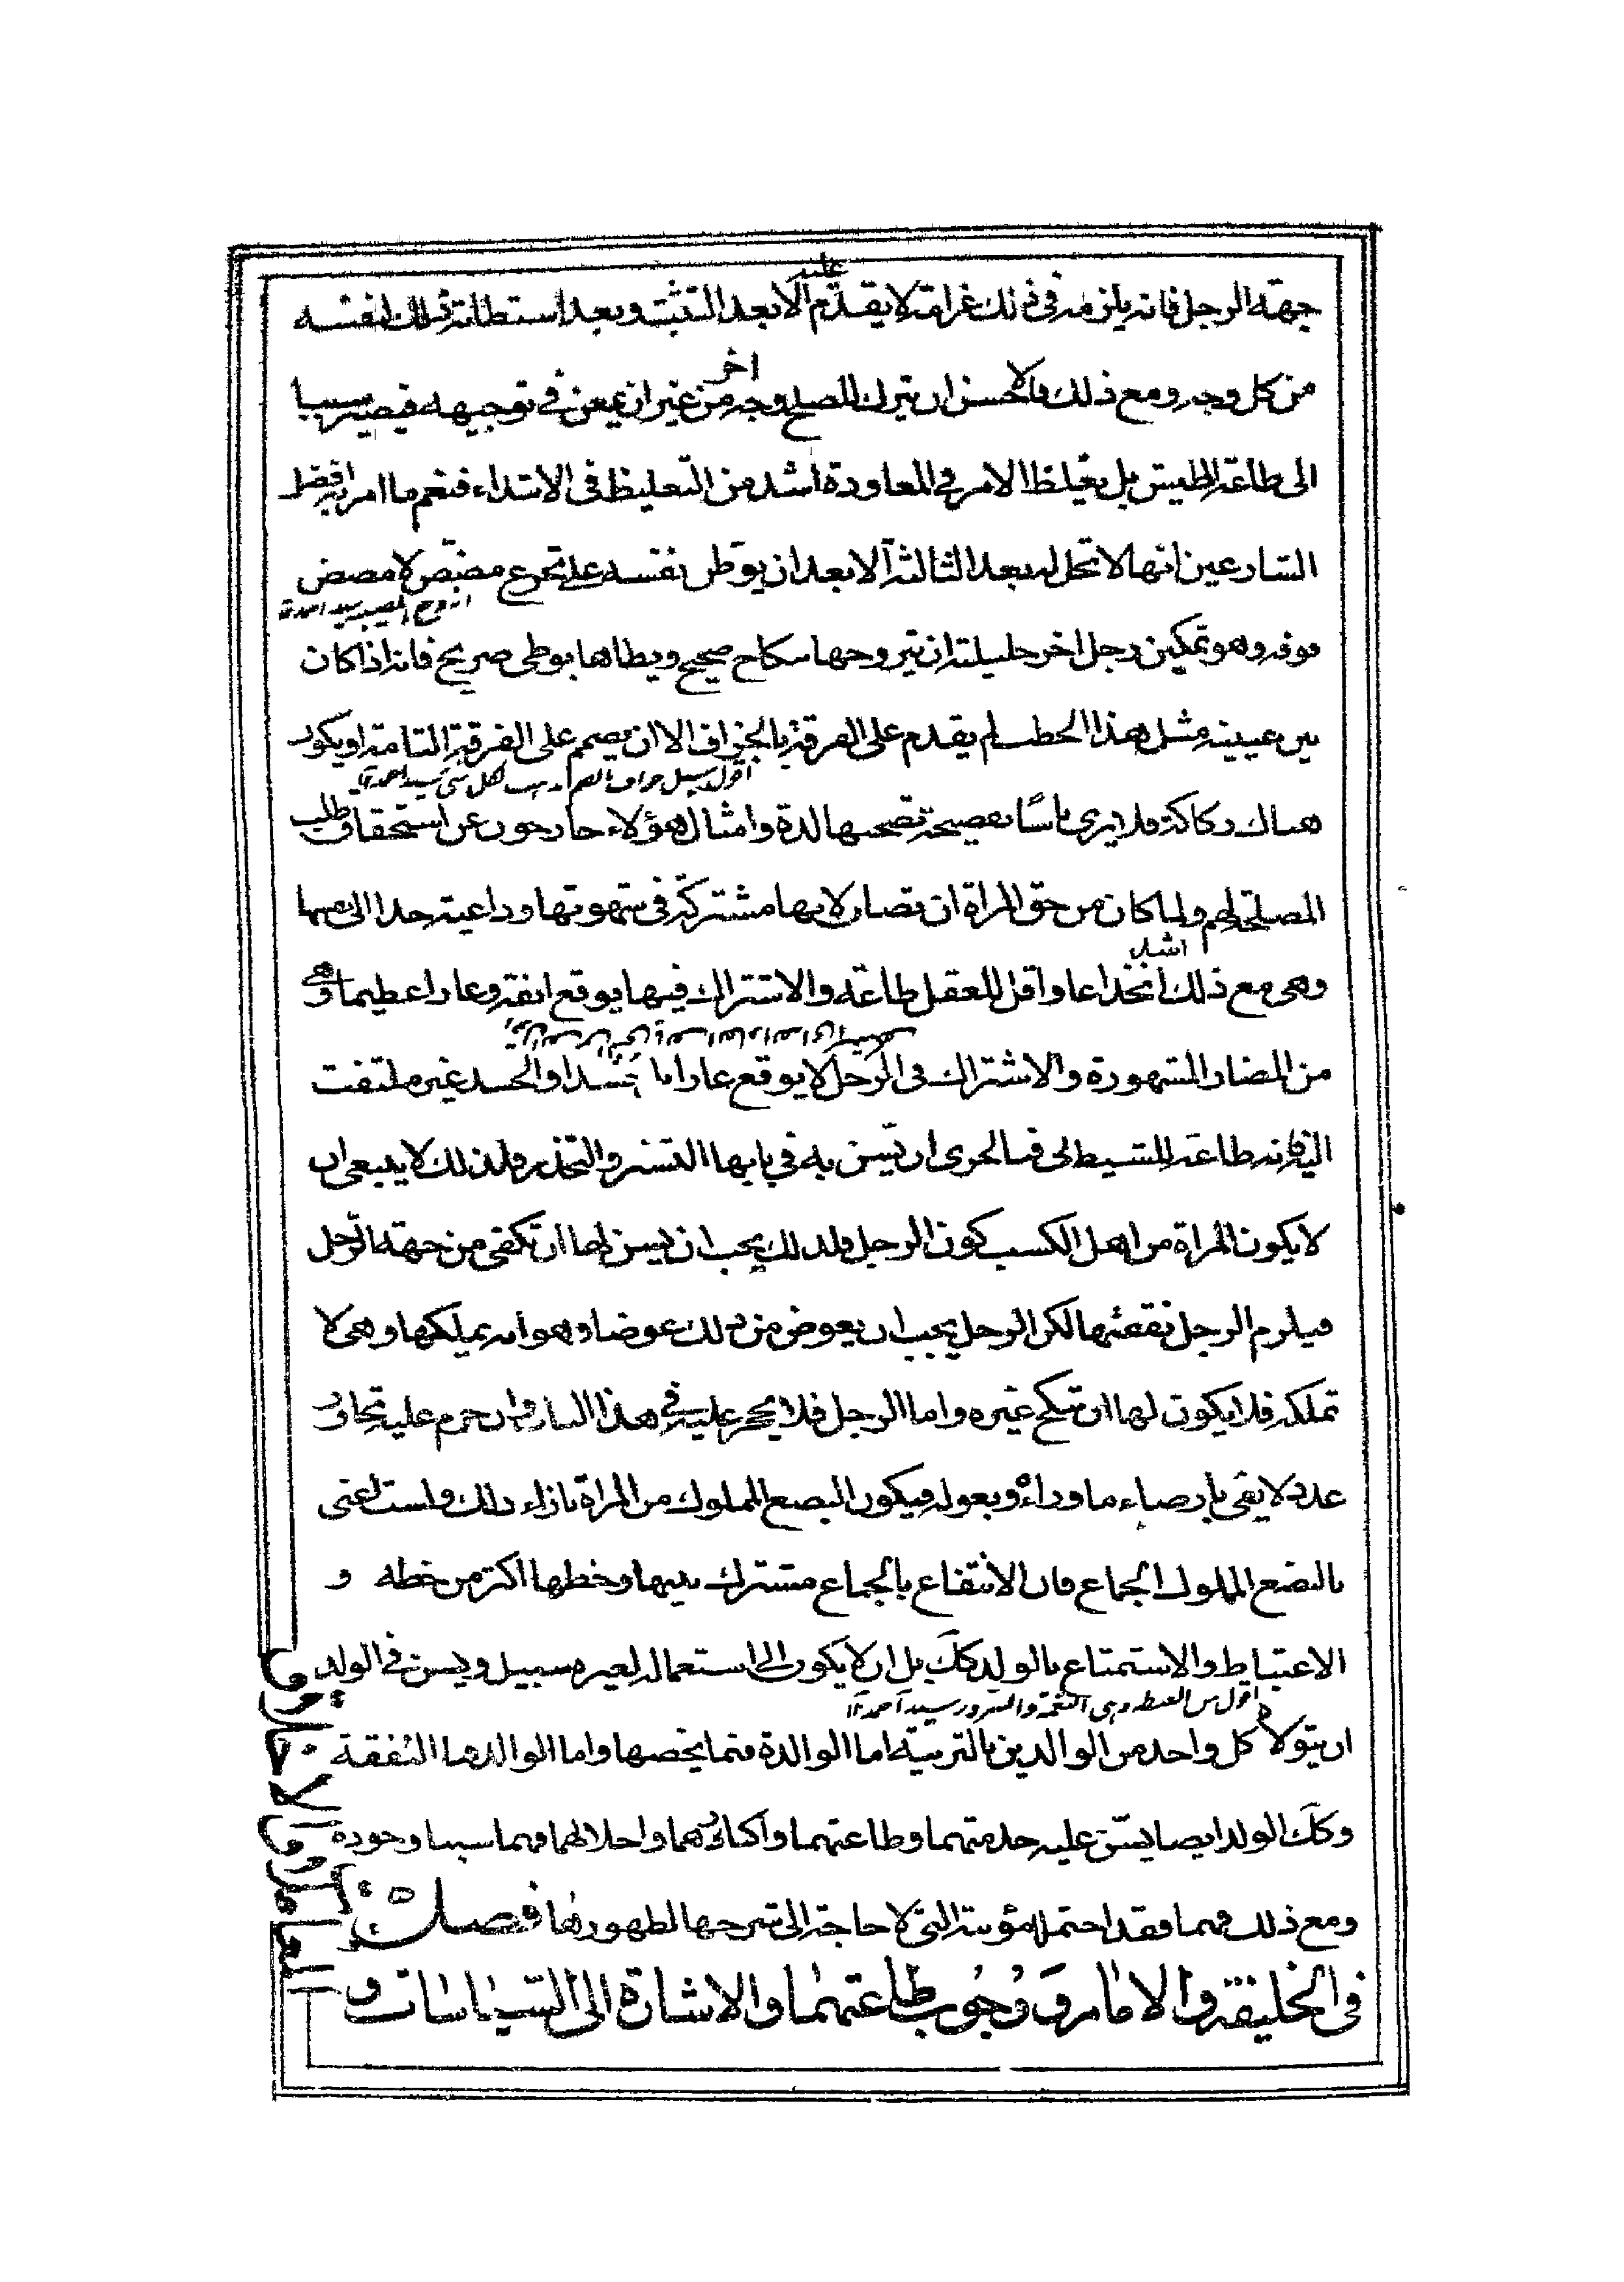 عليه
جهة الرجل فانه يلزمه فى ذلك غرامة لا يقدم الا بعد التثبت وبعد استطالته ذلك لنفسه
اخر
من كل وجه ومع ذلك فالاحسن ان يترك للصلح وجه من غير ان يمعن فى توجيهه فيصير سببا
الى طاعة الطيش بل يغلظ الامر فى المعاودة اشد من التغليظ فى الابتداء فنعم ما امر به افضل
الشارعين انها لا تحل له بعد الثالثة الا بعد ان يوطن نفسه على تجرع مضض لا مضض
فوقه وهو تمكين رجل اخر حليلته ان يتزوجها بنكاح صحيح ويطاها بوطى صريح فانه اذا كان
بين عينيه مثل هذا الخطب لم يقدم على الفرقة بالجزاف الا ان يصمم على الفرقة التامة او يكون
هناك ركاكة فلا يرى باسًا بفضيحة تصحبها لذة وامثال هؤلاء خارجون عن استحقاق طلب
المصلحة لهم ولما كان من حق المراة ان تصان لانها مشتركة فى شهوتها وداعية جدا الى نفسها
اشد
وهى مع ذلك انخداعا واقل للعقل طاعة والاشتراك فيها يوقع انفة وعارا عظيما وهى
من المضار المشهورة والاشتراك فى الرجل لا يوقع عارا بل حسدا والحسد غير ملتفت
اليه فانه طاعة للشيطان فبالحرى ان يسن به فى بابها التستر والتخذر ولذلك لا ينبغى ان
لا يكون المراة من اهل الكسب كون الرجل ولذلك يجب ان يسن لها ان تكفى من جهة الرجل
فيلزم الرجل نفقتها لكن الرجل يجب ان يعوض من ذلك عوضا وهو انه يملكها وهى لا
تملكه فلا يكون لها ان تنكح غيره واما الرجل فلا يحجر عليه فى هذا الباب وان حرم عليه تجاوز
عدد لا يفى بارضاء ما وراءه ويعوله فيكون البضع المملوك من المراة بازاء ذلك ولست اعنى
بالبضع المملوك الجماع فان الانتفاع بالجماع مشترك بينهما وحظها اكثر من حظه و
الاغتباط والاستمتاع بالولد كك بل ان لا يكون الى استعماله لغيره سبيل ويسن فى الولد
اقول من الغبطة وهى النعمة والسرور سيد احمد
ان يتولاه كل واحد من الوالدين بالتربية اما الوالدة فبما يخصها واما الوالد فبالنفقة
وكك الولد ايضا يسن عليه خدمتهما وطاعتهما واكبارهما واجلالهما فهما سببا وجوده
ومع ذلك فهما فقد احتملا مؤنته التى لا حاجة الى شرحها لظهورها فصل
فى الخليفة والامام ووجوب طاعتهما والاشارة الى السياسات و